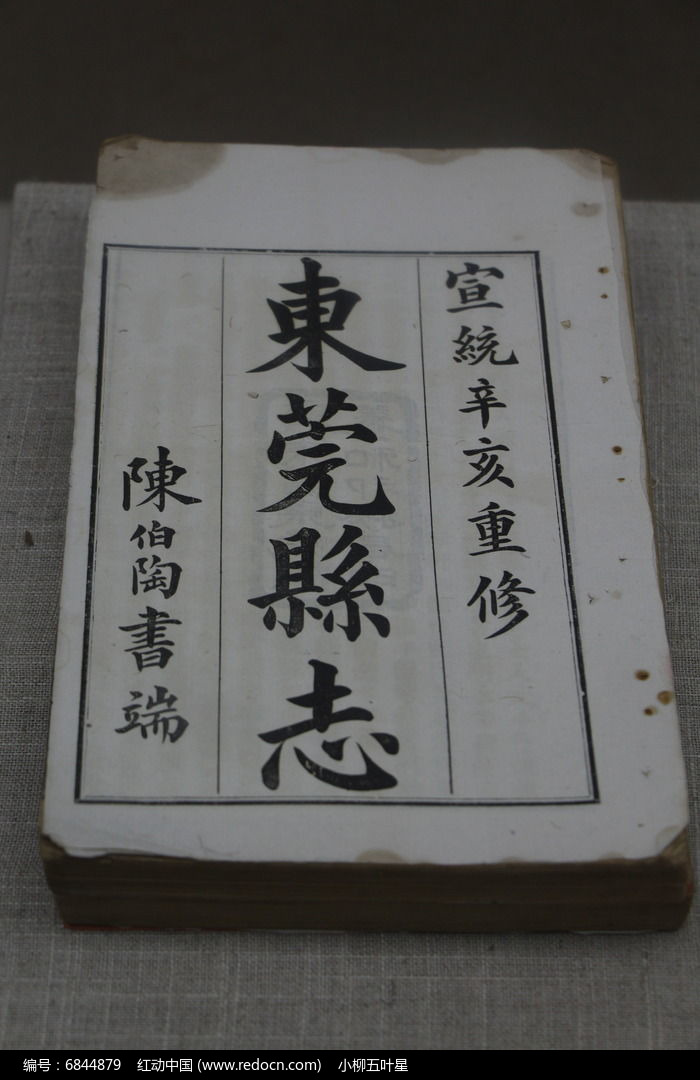 宣統辛亥重修
東莞縣志
陳伯陶書端
编号：6844879 红动中国 (www.redocn.com) 小柳五叶星